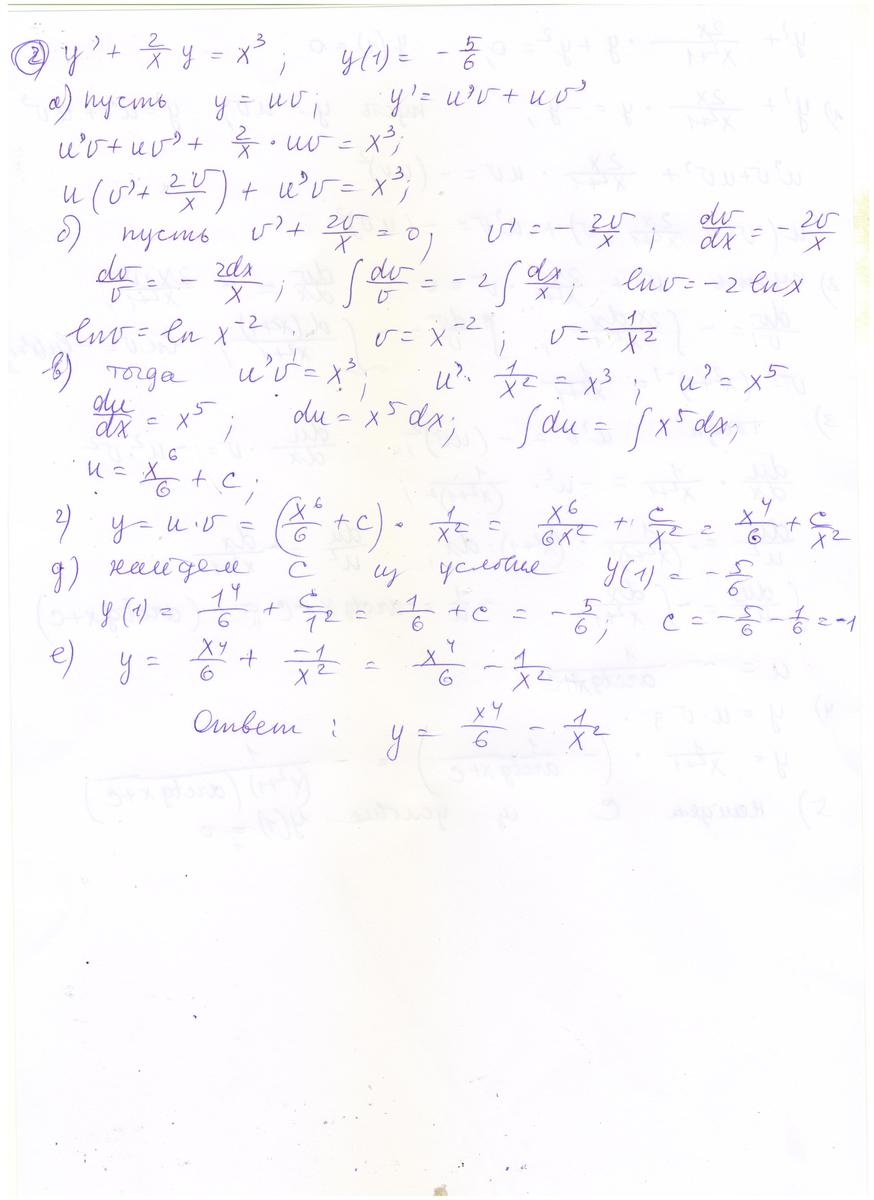 ② y' + 2/x y = x³; y(1) = -5/6
а) пусть y = uv; y' = u'v + uv'
u'v + uv' + 2/x · uv = x³;
u(v' + 2v/x) + u'v = x³;
б) пусть v' + 2v/x = 0; v' = -2v/x; dv/dx = -2v/x
dv/v = -2dx/x; ∫dv/v = -2∫dx/x; lnv = -2lnx
lnv = ln x⁻²; v = x⁻²; v = 1/x²
в) тогда u'v = x³; u' · 1/x² = x³; u' = x⁵
du/dx = x⁵; du = x⁵dx; ∫du = ∫x⁵dx;
u = x⁶/6 + c;
г) y = u·v = (x⁶/6 + c) · 1/x² = x⁶/6x² + c/x² = x⁴/6 + c/x²
д) найдем C из условия y(1) = -5/6
y(1) = 1⁴/6 + c/1² = 1/6 + c = -5/6; c = -5/6 - 1/6 = -1
е) y = x⁴/6 + -1/x² = x⁴/6 - 1/x²
Ответ: y = x⁴/6 - 1/x²